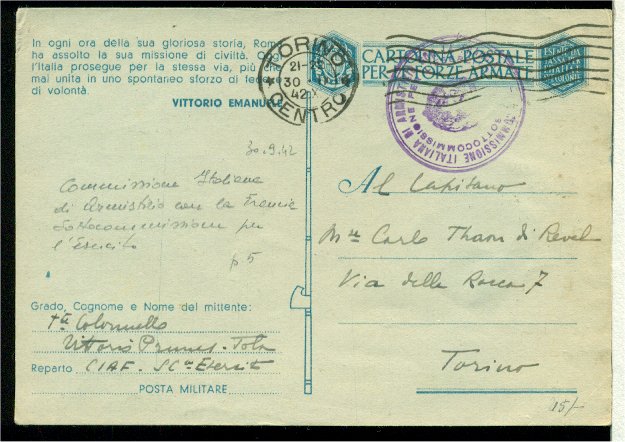 In ogni ora della sua gloriosa storia, Roma
ha assolto la sua missione di civiltà. Og
l'Italia prosegue per la stessa via, più che
mai unita in uno spontaneo sforzo di fede e
di volontà.
VITTORIO EMANUELE
TORINO
21-22
30
42
CENTRO
CARTOLINA POSTALE
PER LE FORZE ARMATE
COMMISSIONE ITALIANA DI ARMISTIZIO
SOTTOCOMMISSIONE
30.9.42
Commissione Italiana
di Armistizio con la Francia
Sottocommissione per
l'Esercito
p 5
Al Capitano
Mse Carlo Thaon di Revel
Via della Rocca 7
Torino
Grado, Cognome e Nome del mittente:
Tte Colonnello
Vittorio Prunas-Tola
Reparto CIAF. SCne Esercito
POSTA MILITARE
15/-